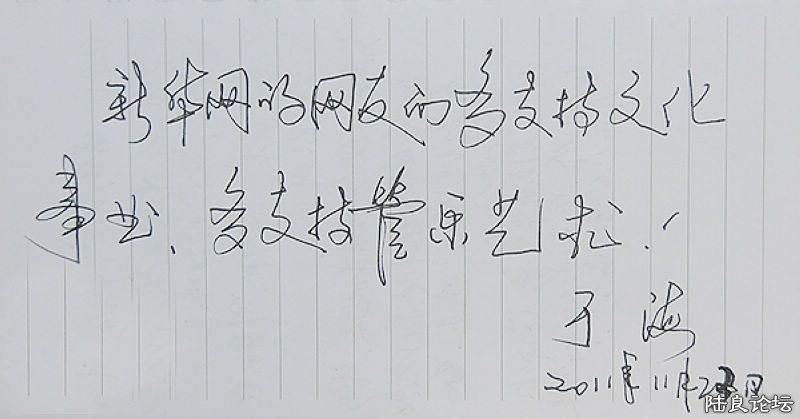 新华网的网友们多支持文化
事业、多支持管乐艺术！
于海
2011年11月23日
陆良论坛